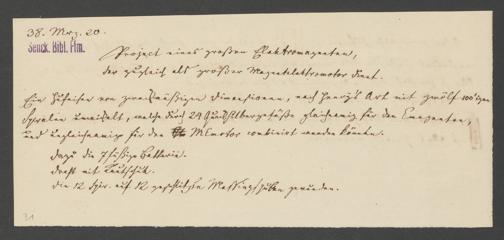 38. Mrz. 20.
Senck. Bibl. Ffm.
Project eines großen Elektromagneten,
der zugleich als großer Magnetelektromotor dient.
Ein Hufeisen von zweizölligen Dimensionen, nach Henry's Art mit zwölf 100'igen
Spiralen umwickelt, welche durch 24 Quecksilbergefäße gleichnamig für den Magneten,
und ungleichnamig für den MEmotor combinirt werden können.
dazu die 7füßige Batterie.
Draht mit Kautschuk.
die 12 Spir. auf 12 gespaltene Messinghülsen gewunden.
31